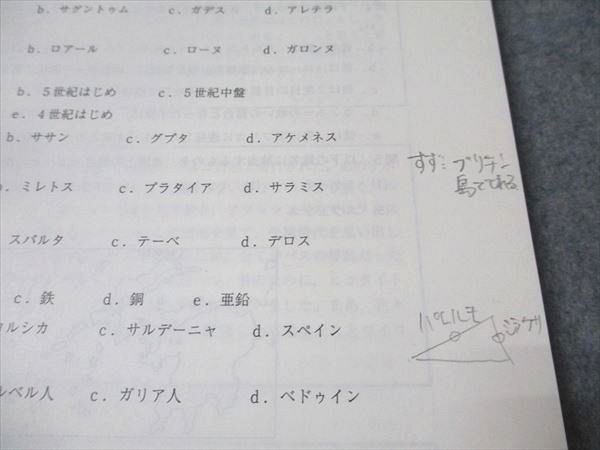 b. サグントゥム c. ガデス d. アレテラ
b. ロアール c. ローヌ d. ガロンヌ
b. 5世紀はじめ c. 5世紀中盤
e. 4世紀はじめ
b. ササン c. グプタ d. アケメネス
すず… ブリテン
島でとれる
b. ミレトス c. プラタイア d. サラミス
スパルタ c. テーベ d. デロス
c. 鉄 d. 銅 e. 亜鉛
ルシカ c. サルデーニャ d. スペイン
パレルモ
ルベル人 c. ガリア人 d. ベドゥイン